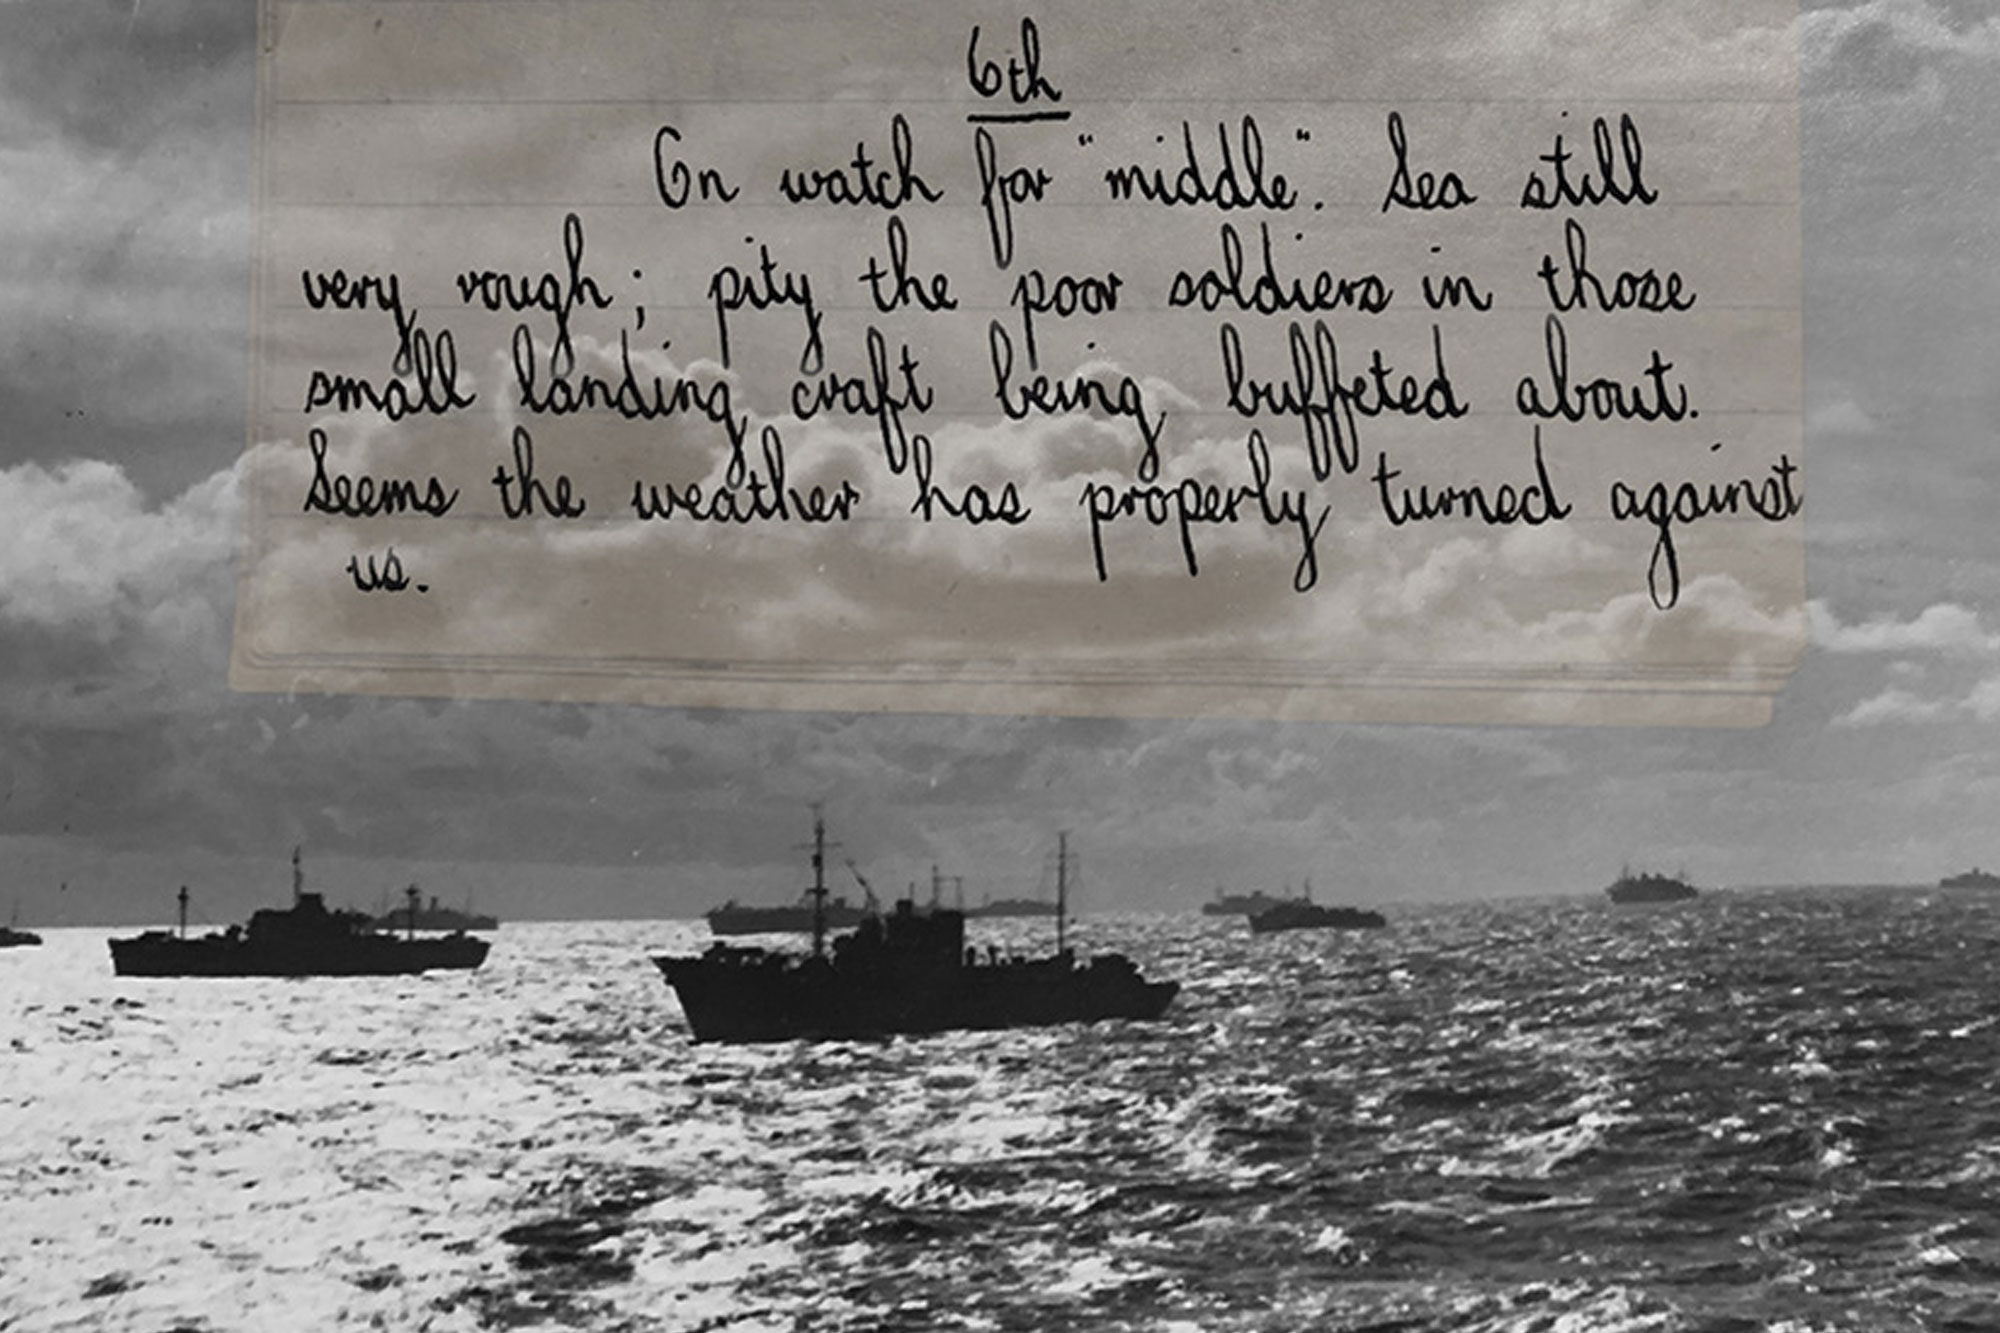 6th
On watch for "middle". Sea still
very rough; pity the poor soldiers in those
small landing craft being buffeted about.
Seems the weather has properly turned against
us.